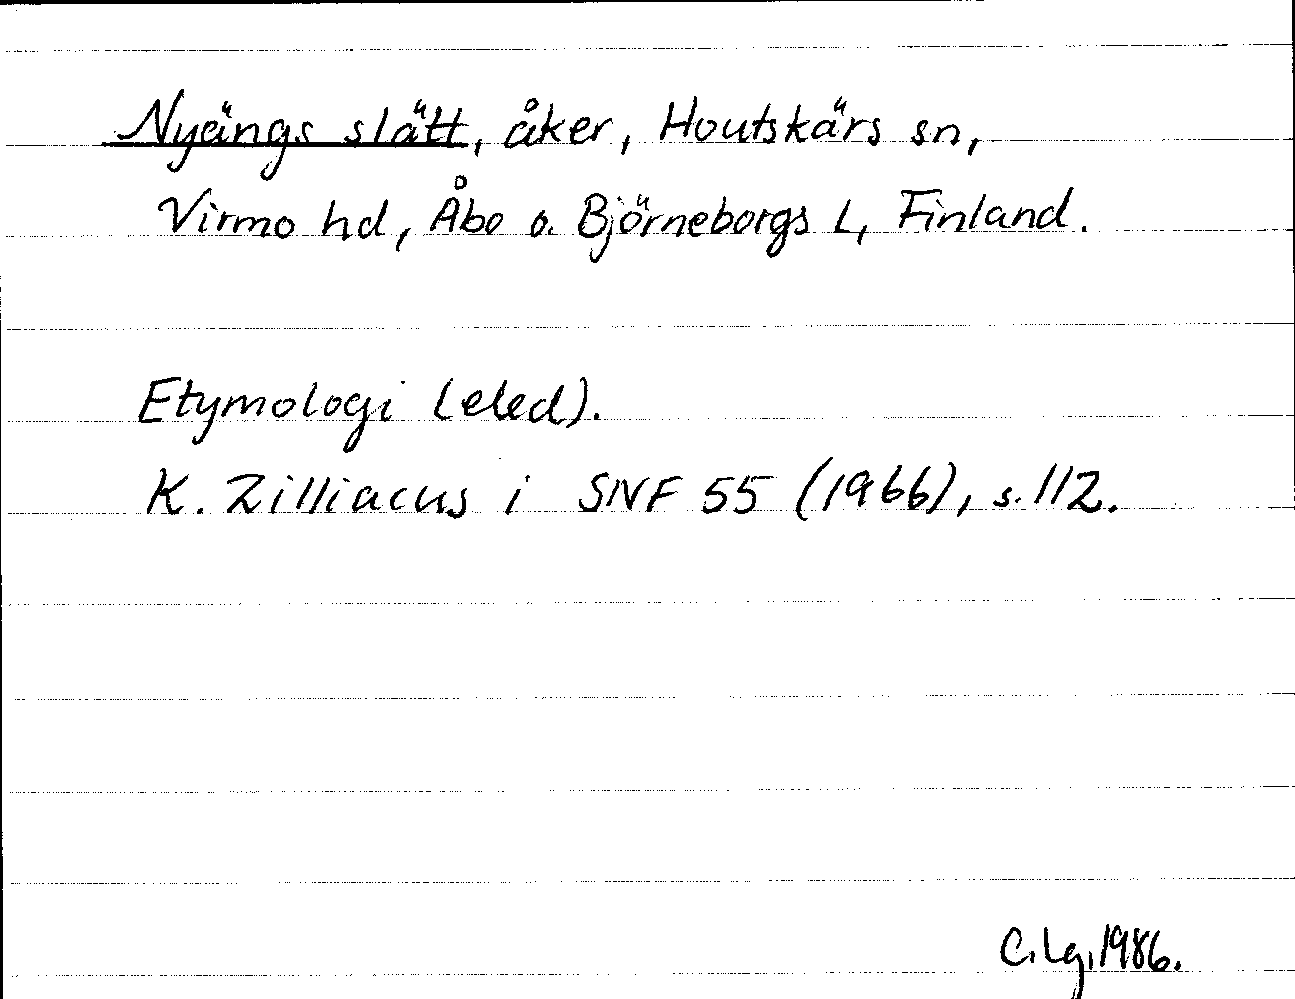 Nyängs slätt, åker, Houtskärs sn,
Virmo hd, Åbo o. Björneborgs L, Finland.
Etymologi (eled).
K. Zilliacus i SNF 55 (1966), s. 112.
C. Lg. 1986.